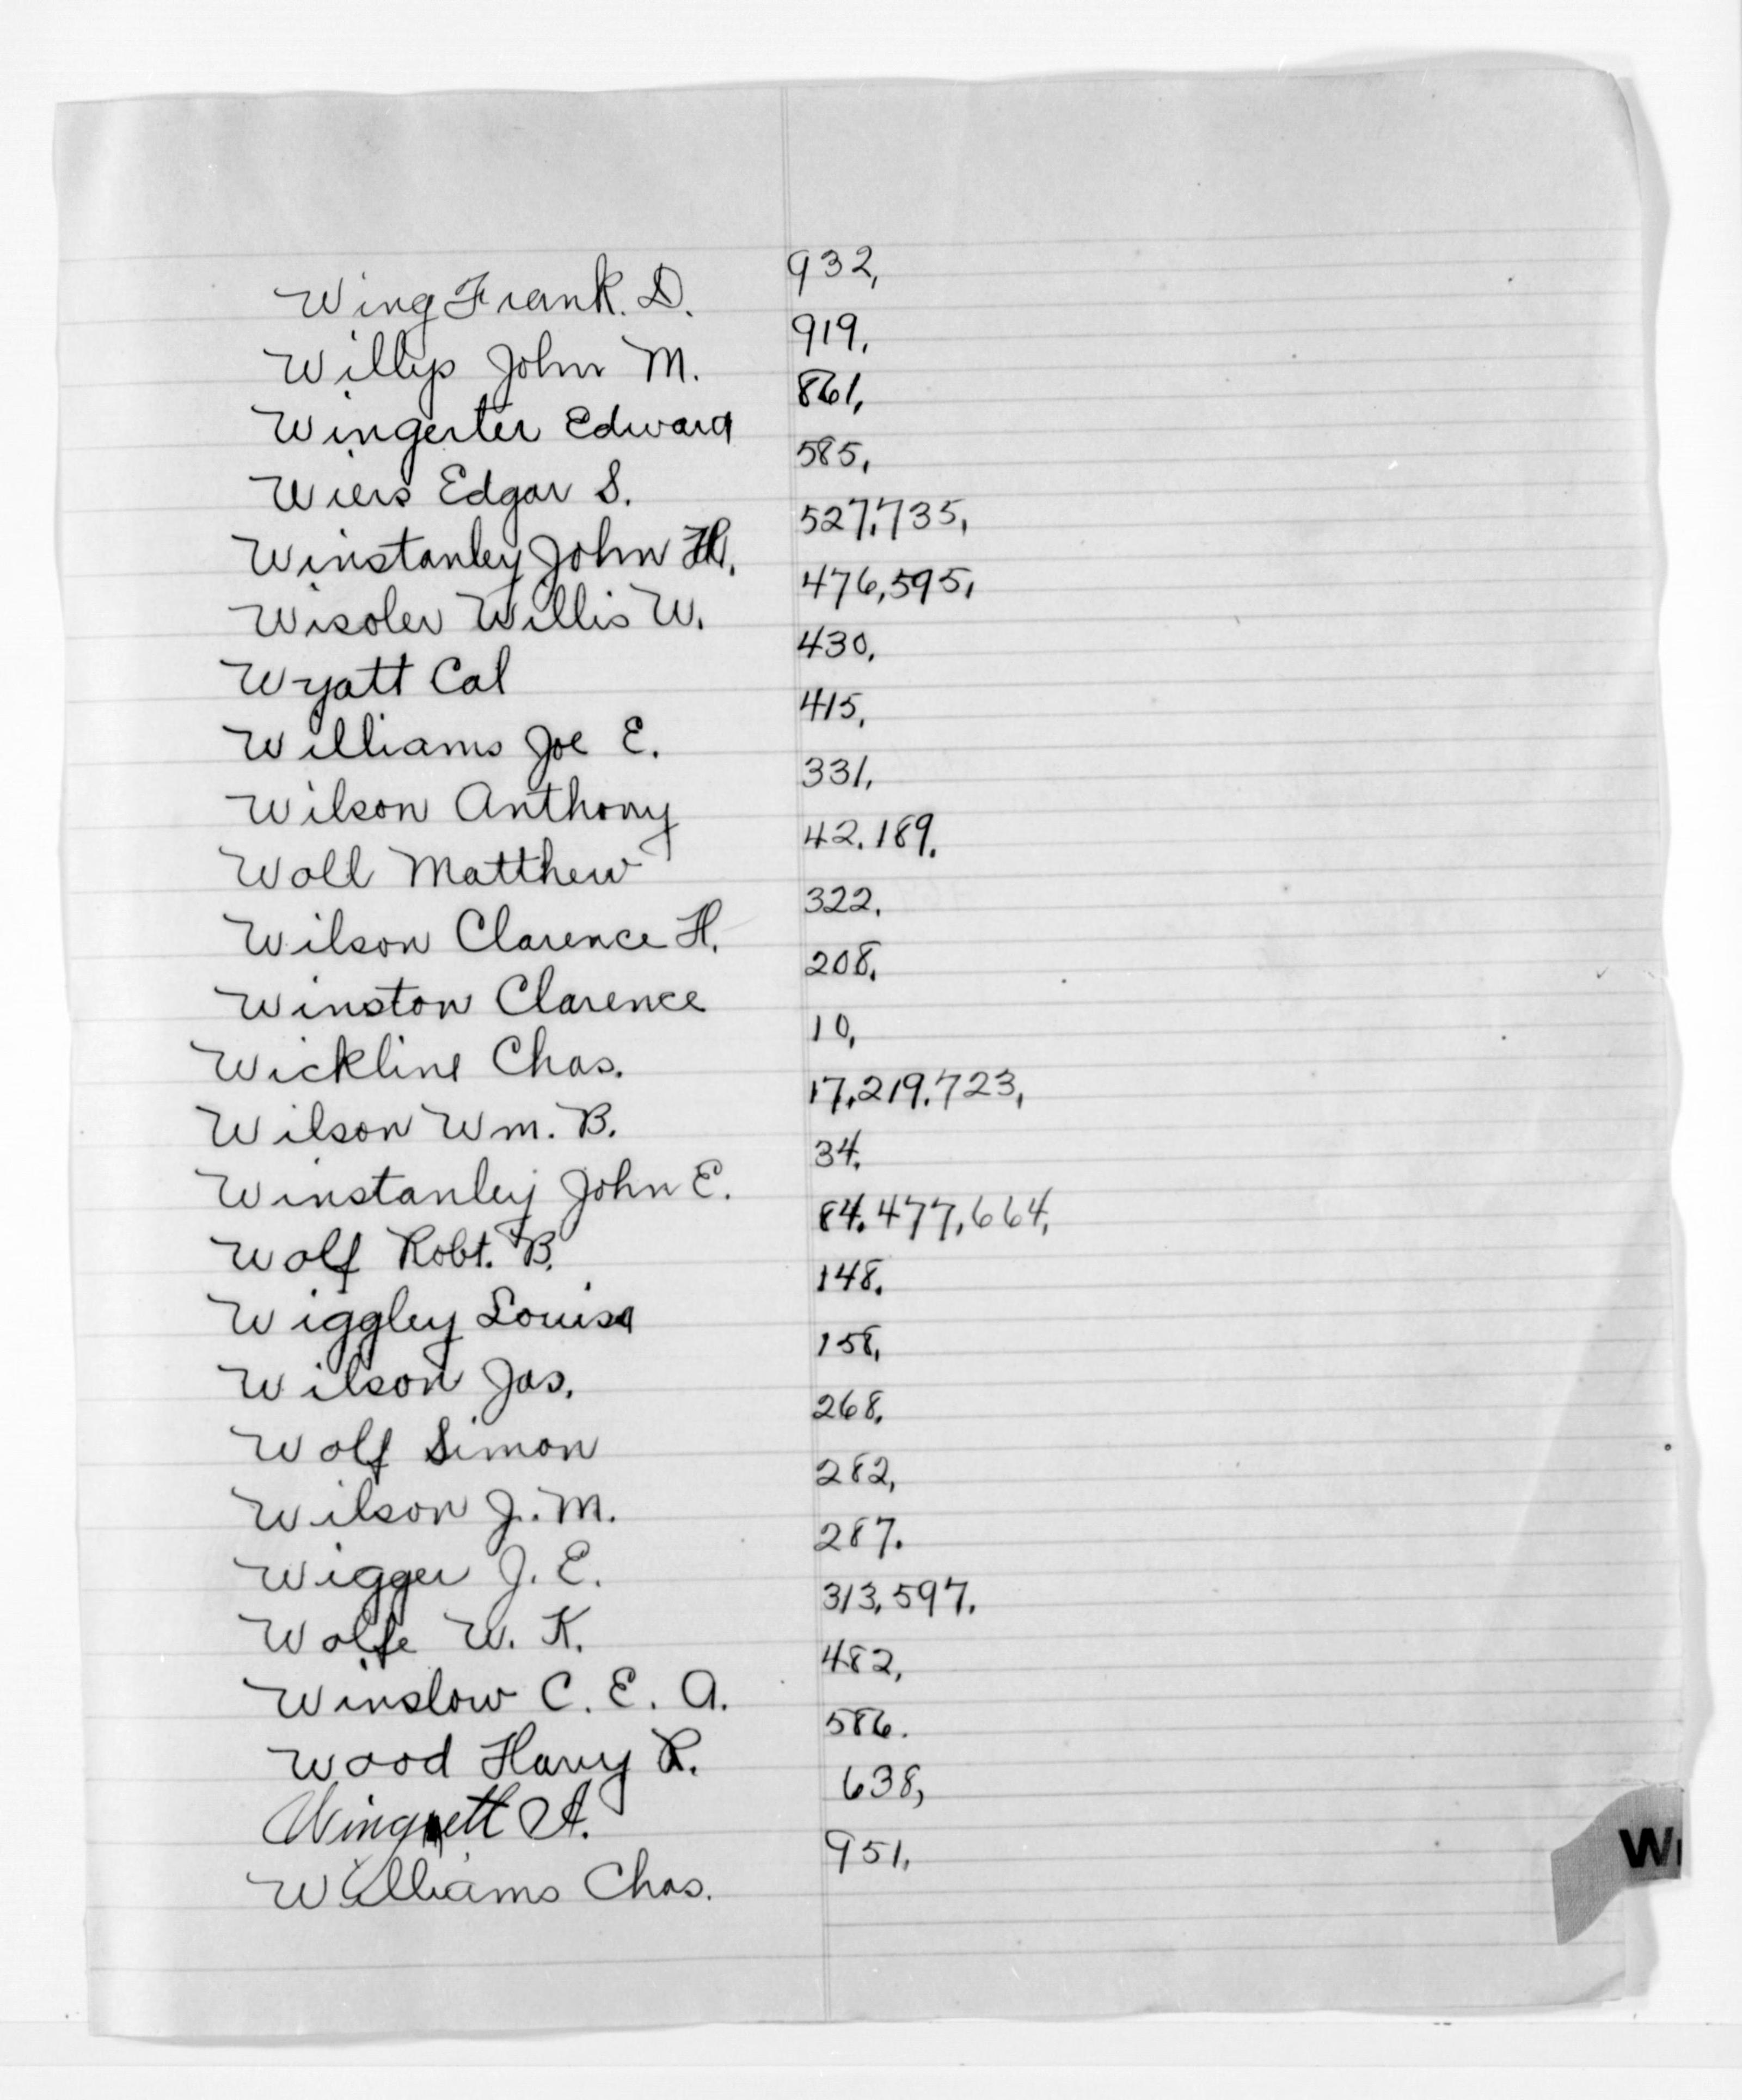 Wing Frank. D. 932,
Willys John M. 919,
Wingerter Edward 861,
Wiers Edgar S. 585,
Winstanley John H. 527,735,
Wisoler Willis W. 476,595,
Wyatt Cal 430,
Williams Joe E. 415,
Wilson Anthony 331,
Woll Matthew 42.189.
Wilson Clarence H. 322,
Winston Clarence 208,
Wickline Chas. 10,
Wilson Wm. B. 17,219,723,
Winstanley John E. 34,
Wolf Robt. B. 84,477,664,
Wiggley Louisa 148.
Wilson Jas. 158,
Wolf Simon 268,
Wilson J. M. 282,
Wigger J. E. 287.
Wolfe W. K. 313,597.
Winslow C. E. A. 482,
Wood Harry R. 586.
A. 638,
Williams Chas. 951,